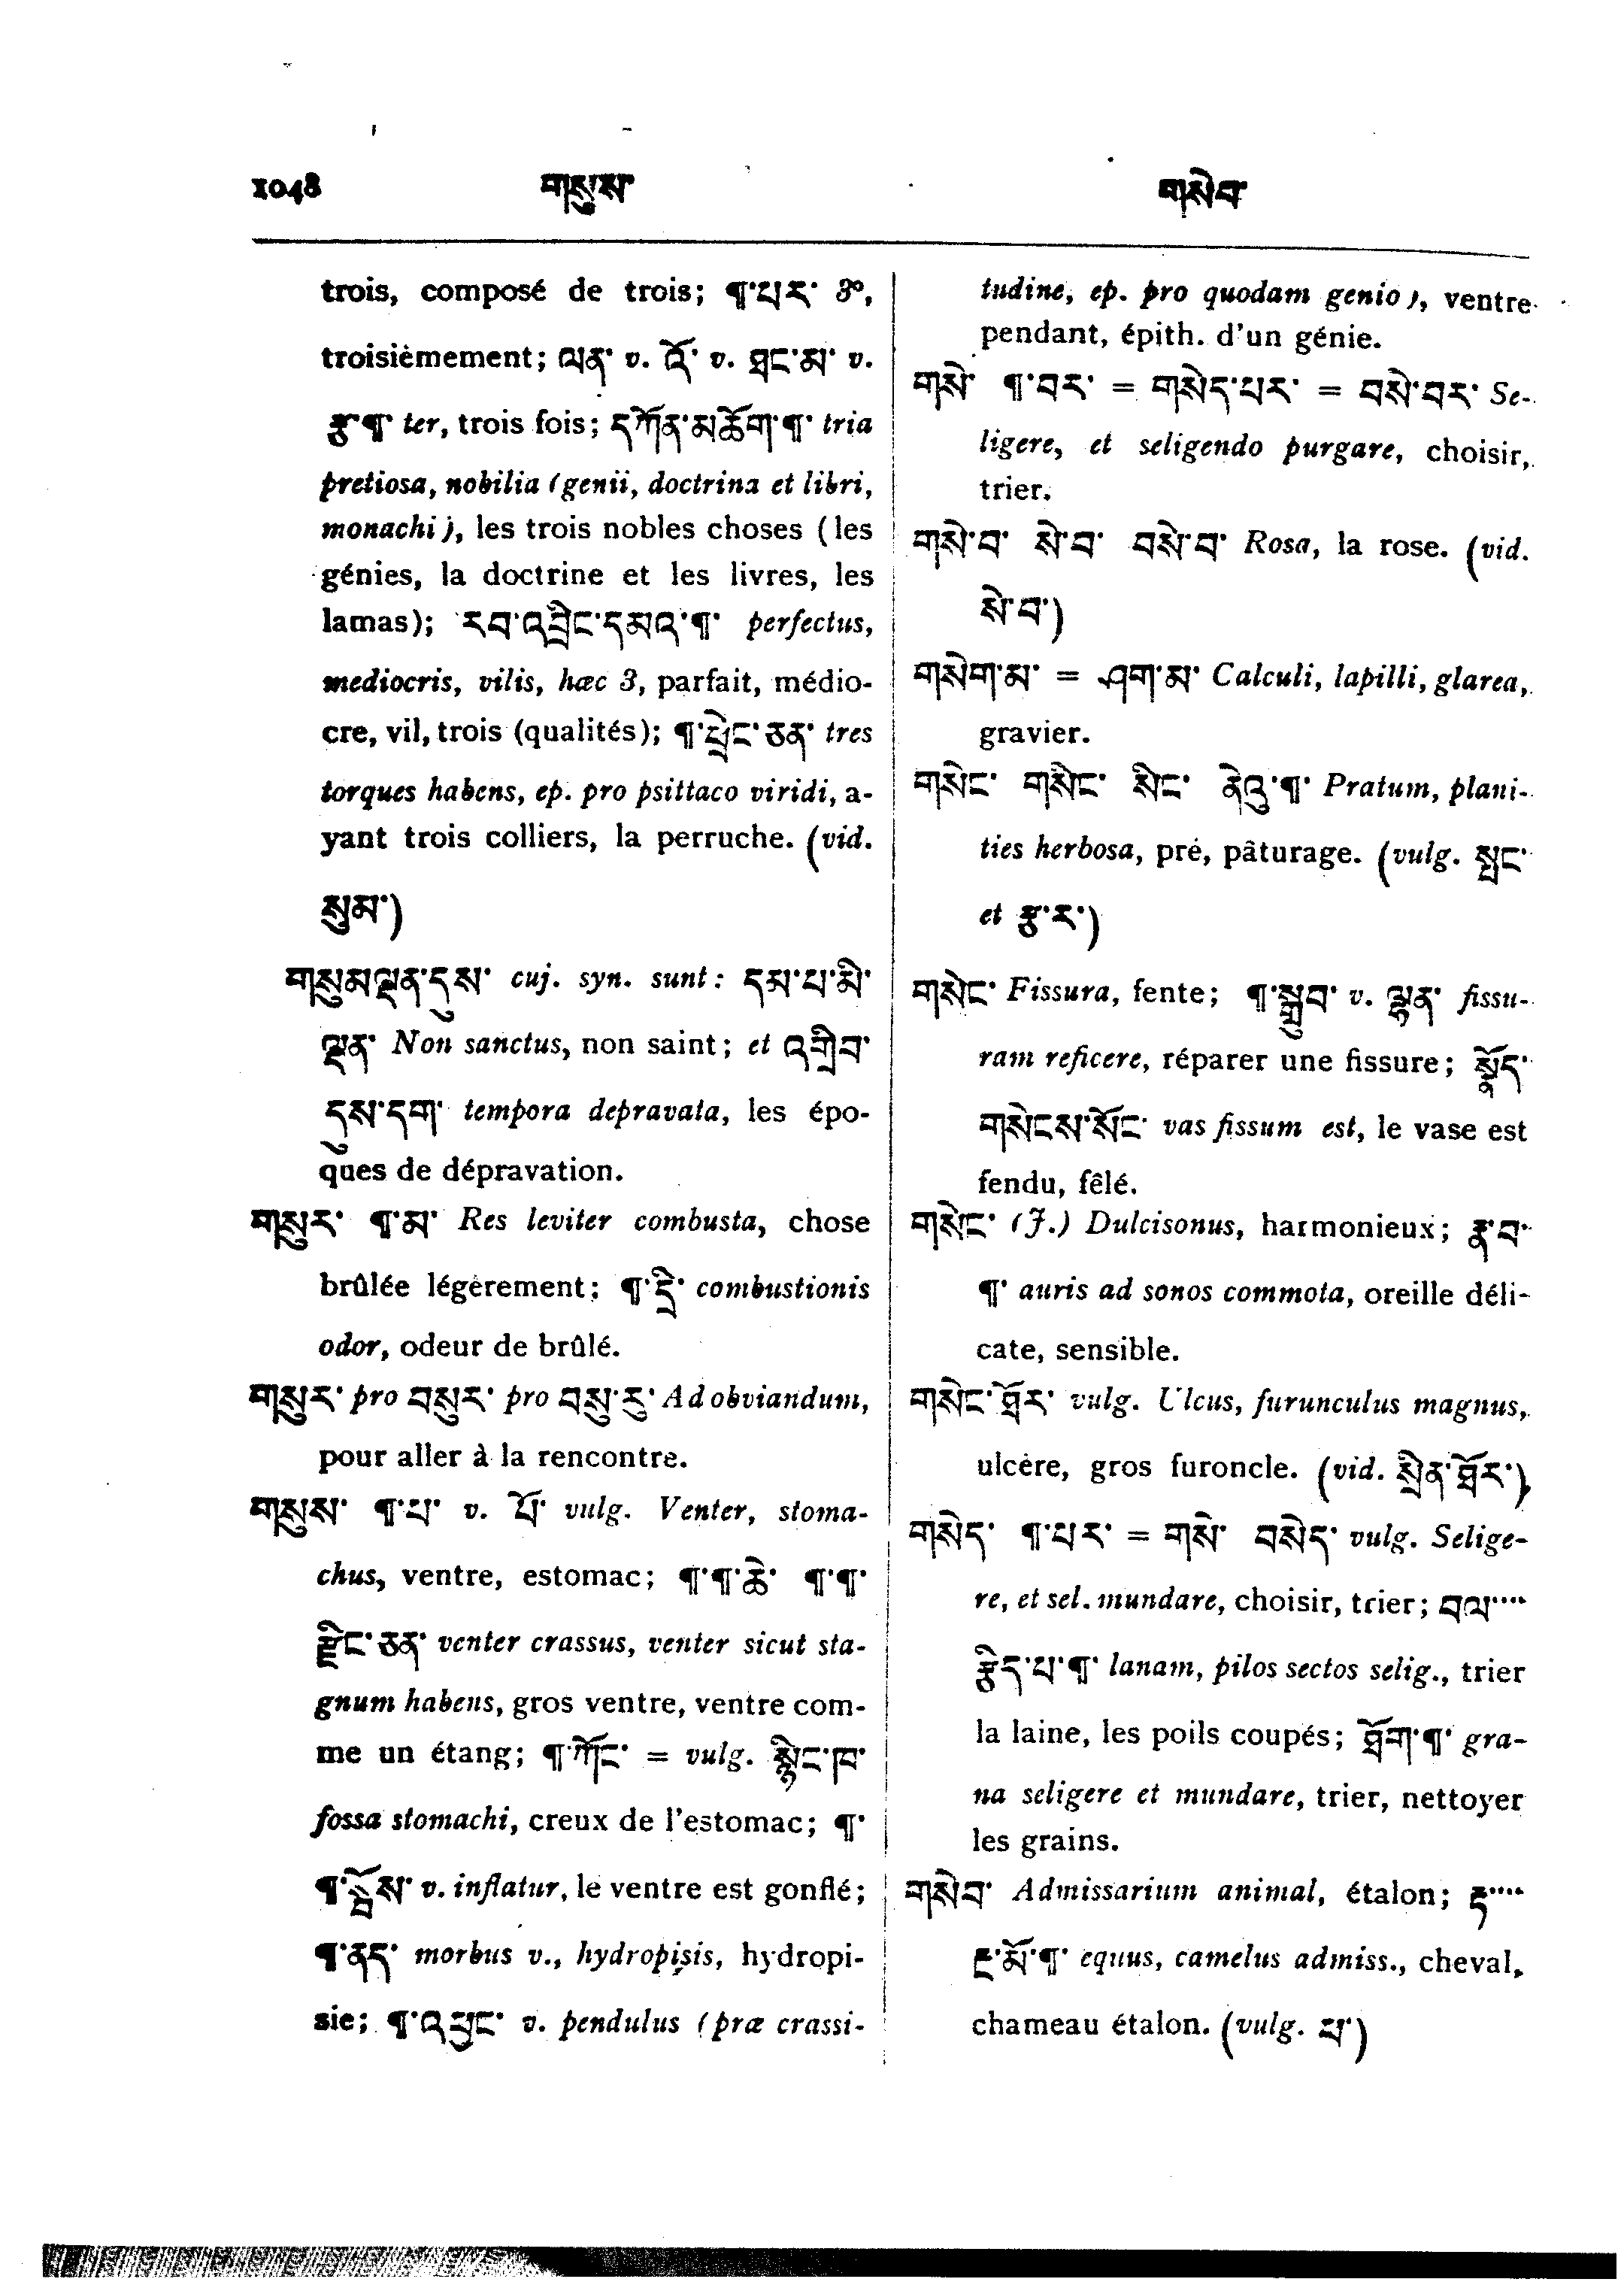 1048 གསུས་ གསེབ་
trois, composé de trois; ¶་པར་ 3º,
troisièmement; ལན་ v. འོ་ v. ཐང་མ་ v.
རྩ་¶་ ter, trois fois; དཀོན་མཆོག་¶་ tria
pretiosa, nobilia (genii, doctrina et libri,
monachi), les trois nobles choses (les
génies, la doctrine et les livres, les
lamas); རབ་འབྲིང་དམའ་¶་ perfectus,
mediocris, vilis, hæc 3, parfait, médio-
cre, vil, trois (qualités); ¶་ཕྲེང་ཅན་ tres
torques habens, ep. pro psittaco viridi, a-
yant trois colliers, la perruche. (vid.
སུམ་)
གསུམལྡན་དུས་ cuj. syn. sunt: དམ་པ་མི་
ལྡན་ Non sanctus, non saint; et འགྲིབ་
དུས་དག་ tempora depravata, les épo-
ques de dépravation.
གསུར་ ¶་མ་ Res leviter combusta, chose
brûlée légèrement; ¶་དྲི་ combustionis
odor, odeur de brûlé.
གསུར་ pro བསུར་ pro བསུ་རུ་ Ad obviandum,
pour aller à la rencontre.
གསུས་ ¶་པ་ v. པོ་ vulg. Venter, stoma-
chus, ventre, estomac; ¶་¶་ཆེ་ ¶་¶་
རྫིང་ཅན་ venter crassus, venter sicut sta-
gnum habens, gros ventre, ventre com-
me un étang; ¶་ཀོང་ = vulg. སྙིང་ཁ་
fossa stomachi, creux de l'estomac; ¶་
¶་སྦོས་ v. inflatur, le ventre est gonflé;
¶་ནད་ morbus v., hydropisis, hydropi-
sie; ¶་འཕྱང་ v. pendulus (præ crassi-
tudine, ep. pro quodam genio), ventre
pendant, épith. d'un génie.
གསེ་ ¶་བར་ = གསེད་པར་ = བསེ་བར་ Se-
ligere, et seligendo purgare, choisir,
trier.
གསེ་བ་ སེ་བ་ བསེ་བ་ Rosa, la rose. (vid.
སེ་བ་)
གསེག་མ་ = ཤག་མ་ Calculi, lapilli, glarea,
gravier.
གསེང་ གསིང་ སིང་ ནེའུ་¶་ Pratum, plani-
ties herbosa, pré, pâturage. (vulg. སྤང་
et རྩྭ་ར་)
གསེང་ Fissura, fente; ¶་སྒྲུབ་ v. ལྷན་ fissu-
ram reficere, réparer une fissure; སྣོད་
གསེངས་སོང་ vas fissum est, le vase est
fendu, fêlé.
གསེང་ (J.) Dulcisonus, harmonieux; རྣ་བ་
¶་ auris ad sonos commota, oreille déli-
cate, sensible.
གསེང་ཐོར་ vulg. Ulcus, furunculus magnus,
ulcère, gros furoncle. (vid. སྲིན་ཐོར་)
གསེད་ ¶་པར་ = གསེ་ བསེད་ vulg. Selige-
re, et sel. mundare, choisir, trier; བལ་…
རྩིད་པ་¶་ lanam, pilos sectos selig., trier
la laine, les poils coupés; ཐོག་¶་ gra-
na seligere et mundare, trier, nettoyer
les grains.
གསེབ་ Admissarium animal, étalon; རྟ་…
རྔ་མོ་¶་ equus, camelus admiss., cheval,
chameau étalon. (vulg. ཕ་)